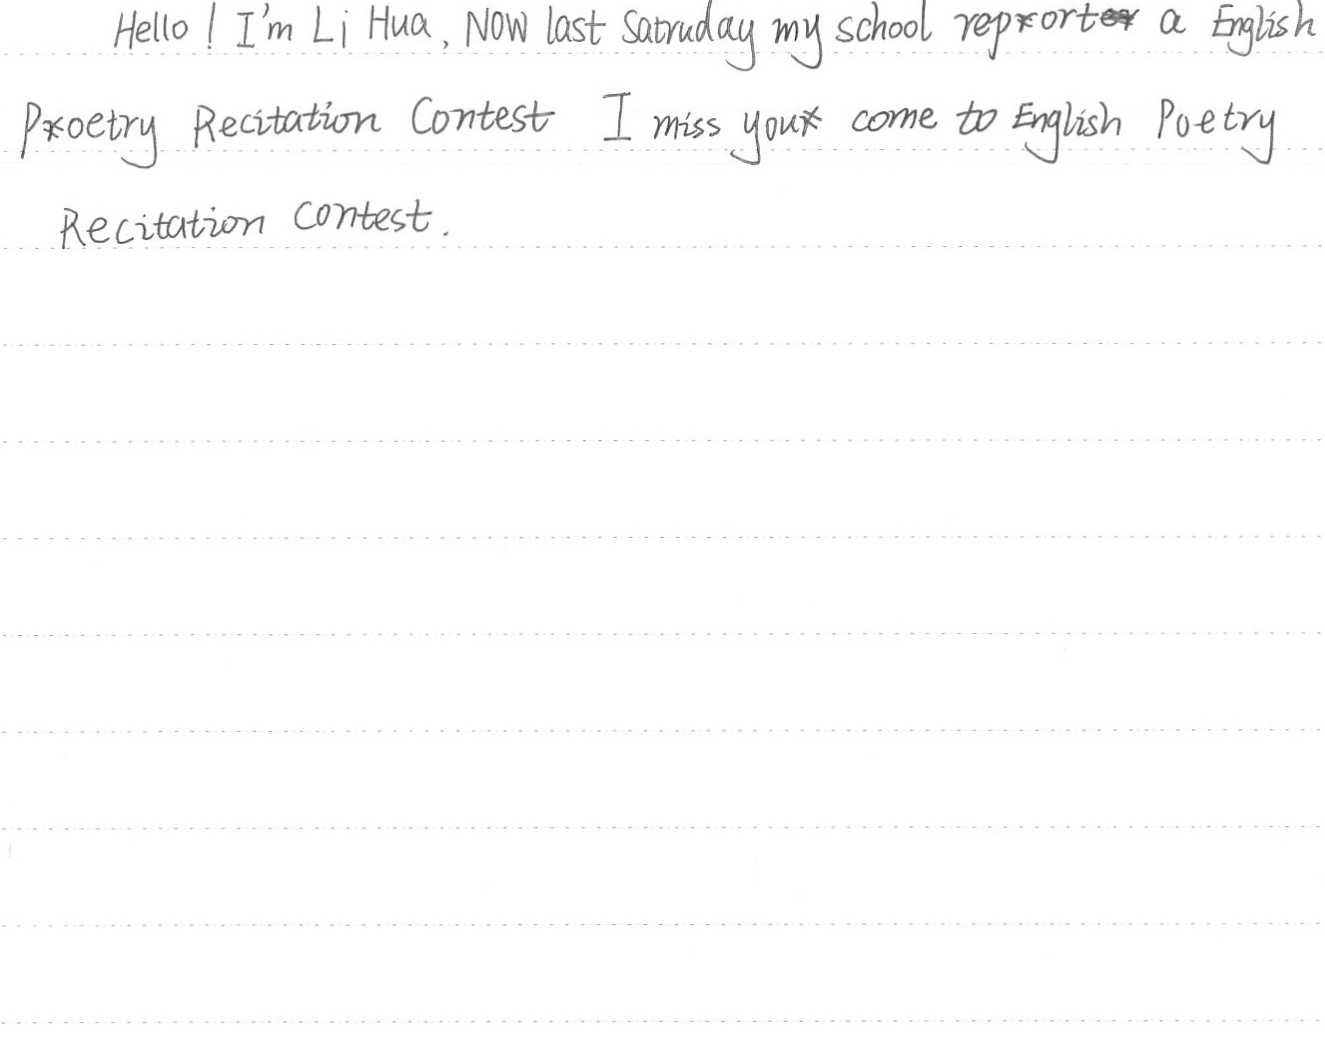 Hello! I'm Li Hua, Now last Satruday my school report a English
Poetry Recitation Contest I miss you come to English Poetry
Recitation Contest.